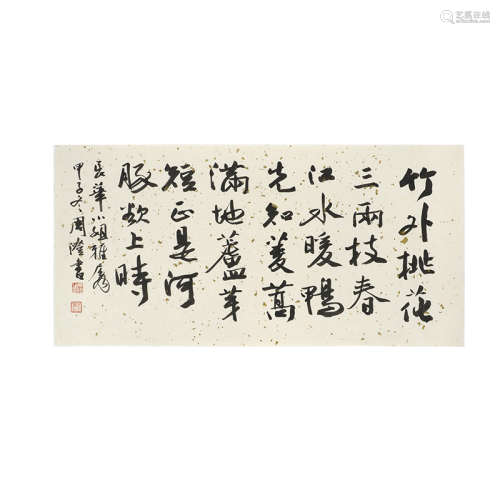 艺狐在线
竹外桃花
三兩枝春
江水暖鴨
先知蔞蒿
滿地蘆芽
短正是河
豚欲上時
小姐雅屬
甲子冬書